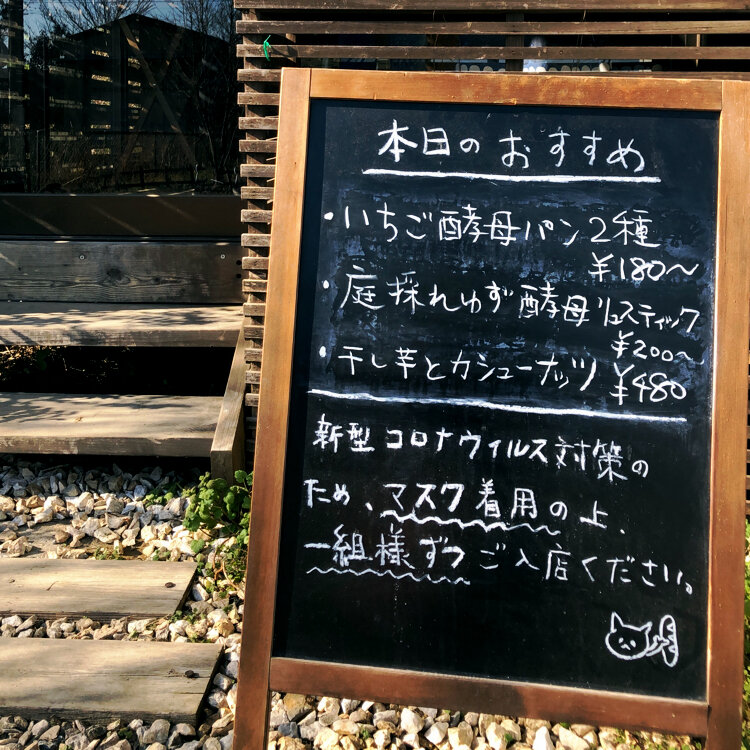 本日のおすすめ
・いちご酵母パン2種
¥180〜
・庭採れゆず酵母リュスティック
¥200〜
・干し芋とカシューナッツ ¥480
新型コロナウィルス対策の
ため、マスク着用の上、
一組様ずつご入店ください。